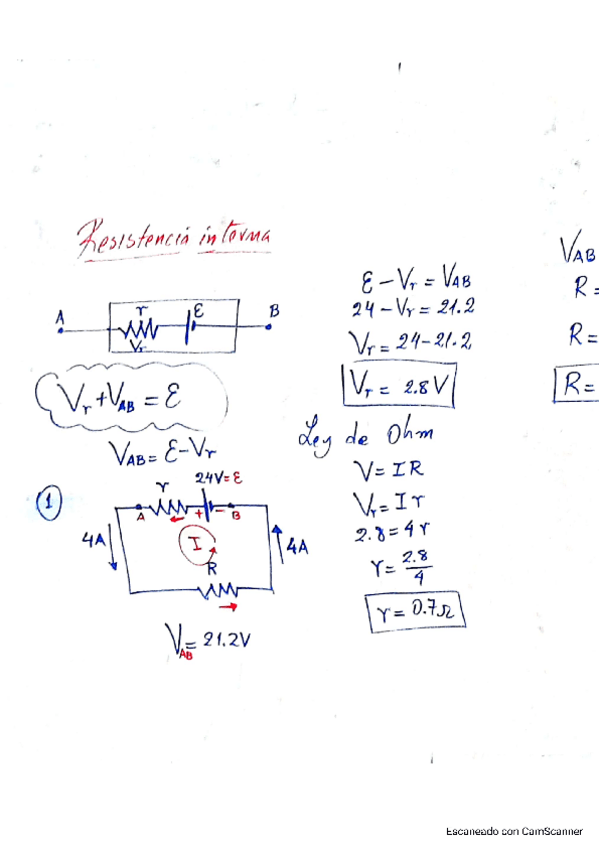 Resistencia interna
A r ε B
Vr
Vr + VAB = ε
VAB = ε - Vr
1
r 24V = ε
A + - B
4A I 4A
R
VAB = 21.2V
ε - Vr = VAB
24 - Vr = 21.2
Vr = 24 - 21.2
Vr = 2.8 V
Ley de Ohm
V = I R
Vr = I r
2.8 = 4 r
r = 2.8/4
r = 0.7Ω
VAB
R =
R =
R =
Escaneado con CamScanner